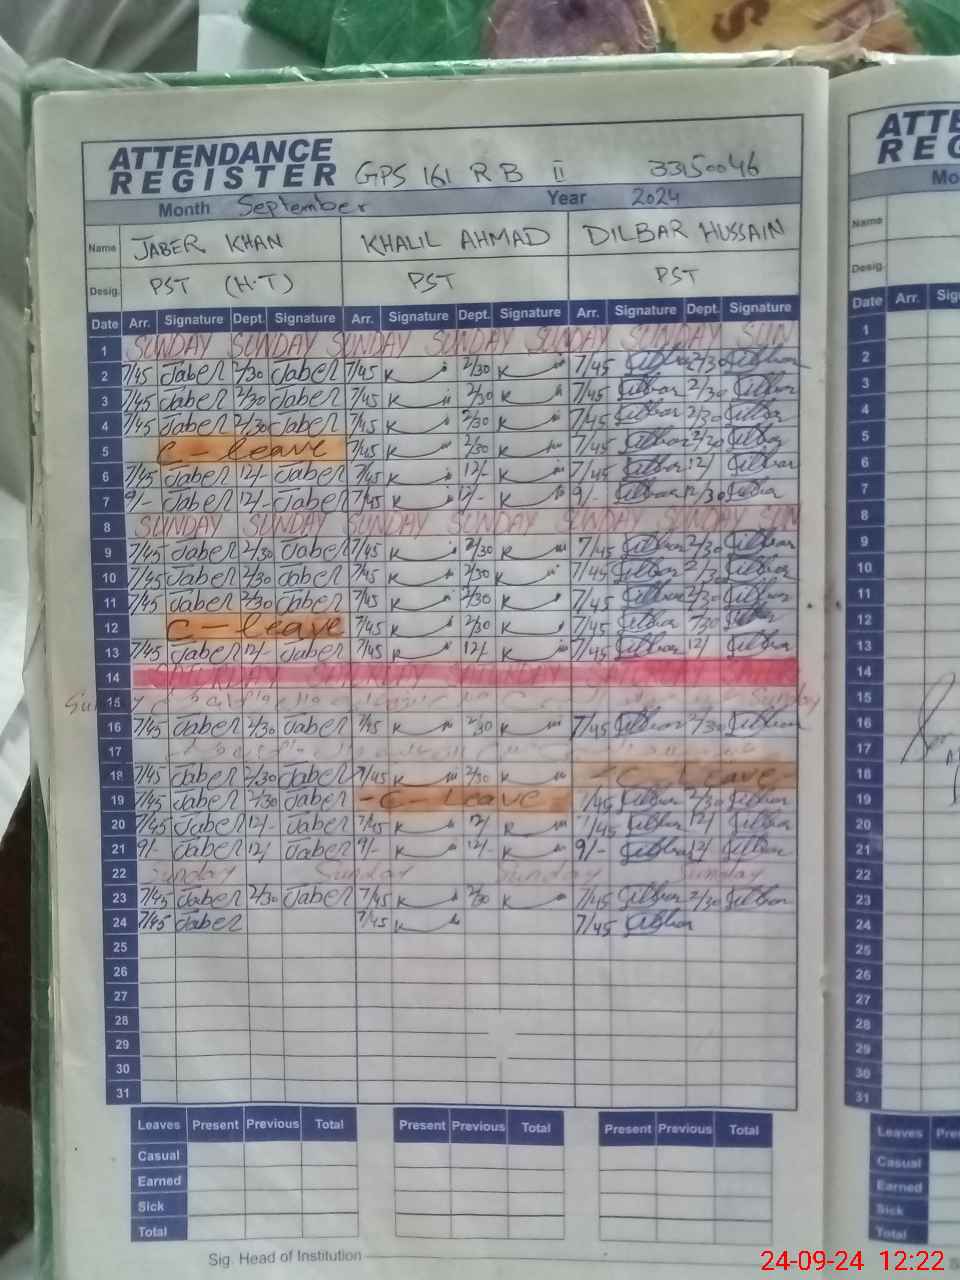 ATTENDANCE
REGISTER GPS 161 RB II 33150046
Month September Year 2024
Name JABER KHAN KHALIL AHMAD DILBAR HUSSAIN
Desig. PST (H.T) PST PST
Date Arr. Signature Dept. Signature Arr. Signature Dept. Signature Arr. Signature Dept. Signature
1 SUNDAY SUNDAY SUNDAY SUNDAY SUNDAY SUNDAY SUN
2 7/45 Jaber 2/30 Jaber 7/45 K 2/30 K 7/45 Dilbar 2/30 Dilbar
3 7/45 Jaber 2/30 Jaber 7/45 K 2/30 K 7/45 Dilbar 2/30 Dilbar
4 7/45 Jaber 2/30 Jaber 7/45 K 2/30 K 7/45 Dilbar 2/30 Dilbar
5 C - leave 7/45 K 2/30 K 7/45 Dilbar 2/30 Dilbar
6 7/45 Jaber 12/- Jaber 7/45 K 12/- K 7/45 Dilbar 12/ Dilbar
7 9/- Jaber 12/- Jaber 7/45 K 12/- K 9/- Dilbar 12/30 Dilbar
8 SUNDAY SUNDAY SUNDAY SUNDAY SUNDAY SUNDAY SUN
9 7/45 Jaber 2/30 Jaber 7/45 K 2/30 K 7/45 Dilbar 2/30 Dilbar
10 7/45 Jaber 2/30 Jaber 7/45 K 2/30 K 7/45 Dilbar 2/30 Dilbar
11 7/45 Jaber 2/30 Jaber 7/45 K 2/30 K 7/45 Dilbar 2/30 Dilbar
12 C - leave 7/45 K 2/30 K 7/45 Dilbar Dilbar
13 7/45 Jaber 12/- Jaber 7/45 K 12/- K 7/45 Dilbar 12/ Dilbar
14 SATURDAY SATURDAY SATURDAY
15 Sunday
16 7/45 Jaber 2/30 Jaber 7/45 K 2/30 K 7/45 Dilbar 2/30 Dilbar
17
18 7/45 Jaber 2/30 Jaber 7/45 K 2/30 K - C - Leave -
19 7/45 Jaber 2/30 Jaber - C - Leave 7/45 Dilbar 2/30 Dilbar
20 7/45 Jaber 12/- Jaber 7/45 K 12/ K 7/45 Dilbar 12/ Dilbar
21 9/- Jaber 12/ Jaber 9/- K 12/- K 9/- Dilbar 12/ Dilbar
22 Sunday Sunday Sunday Sunday
23 7/45 Jaber 2/30 Jaber 7/45 K 2/30 K 7/45 Dilbar 2/30 Dilbar
24 7/45 Jaber 7/45 K 7/45 Dilbar
25
26
27
28
29
30
31
Leaves Present Previous Total Present Previous Total Present Previous Total
Casual
Earned
Sick
Total
Sig. Head of Institution
ATTE
REG
Mo
Name
Desig.
Date Arr. Sig
1
2
3
4
5
6
7
8
9
10
11
12
13
14
15
16
17
18
19
20
21
22
23
24
25
26
27
28
29
30
31
Leaves Pre
Casual
Earned
Sick
Total
24-09-24 12:22